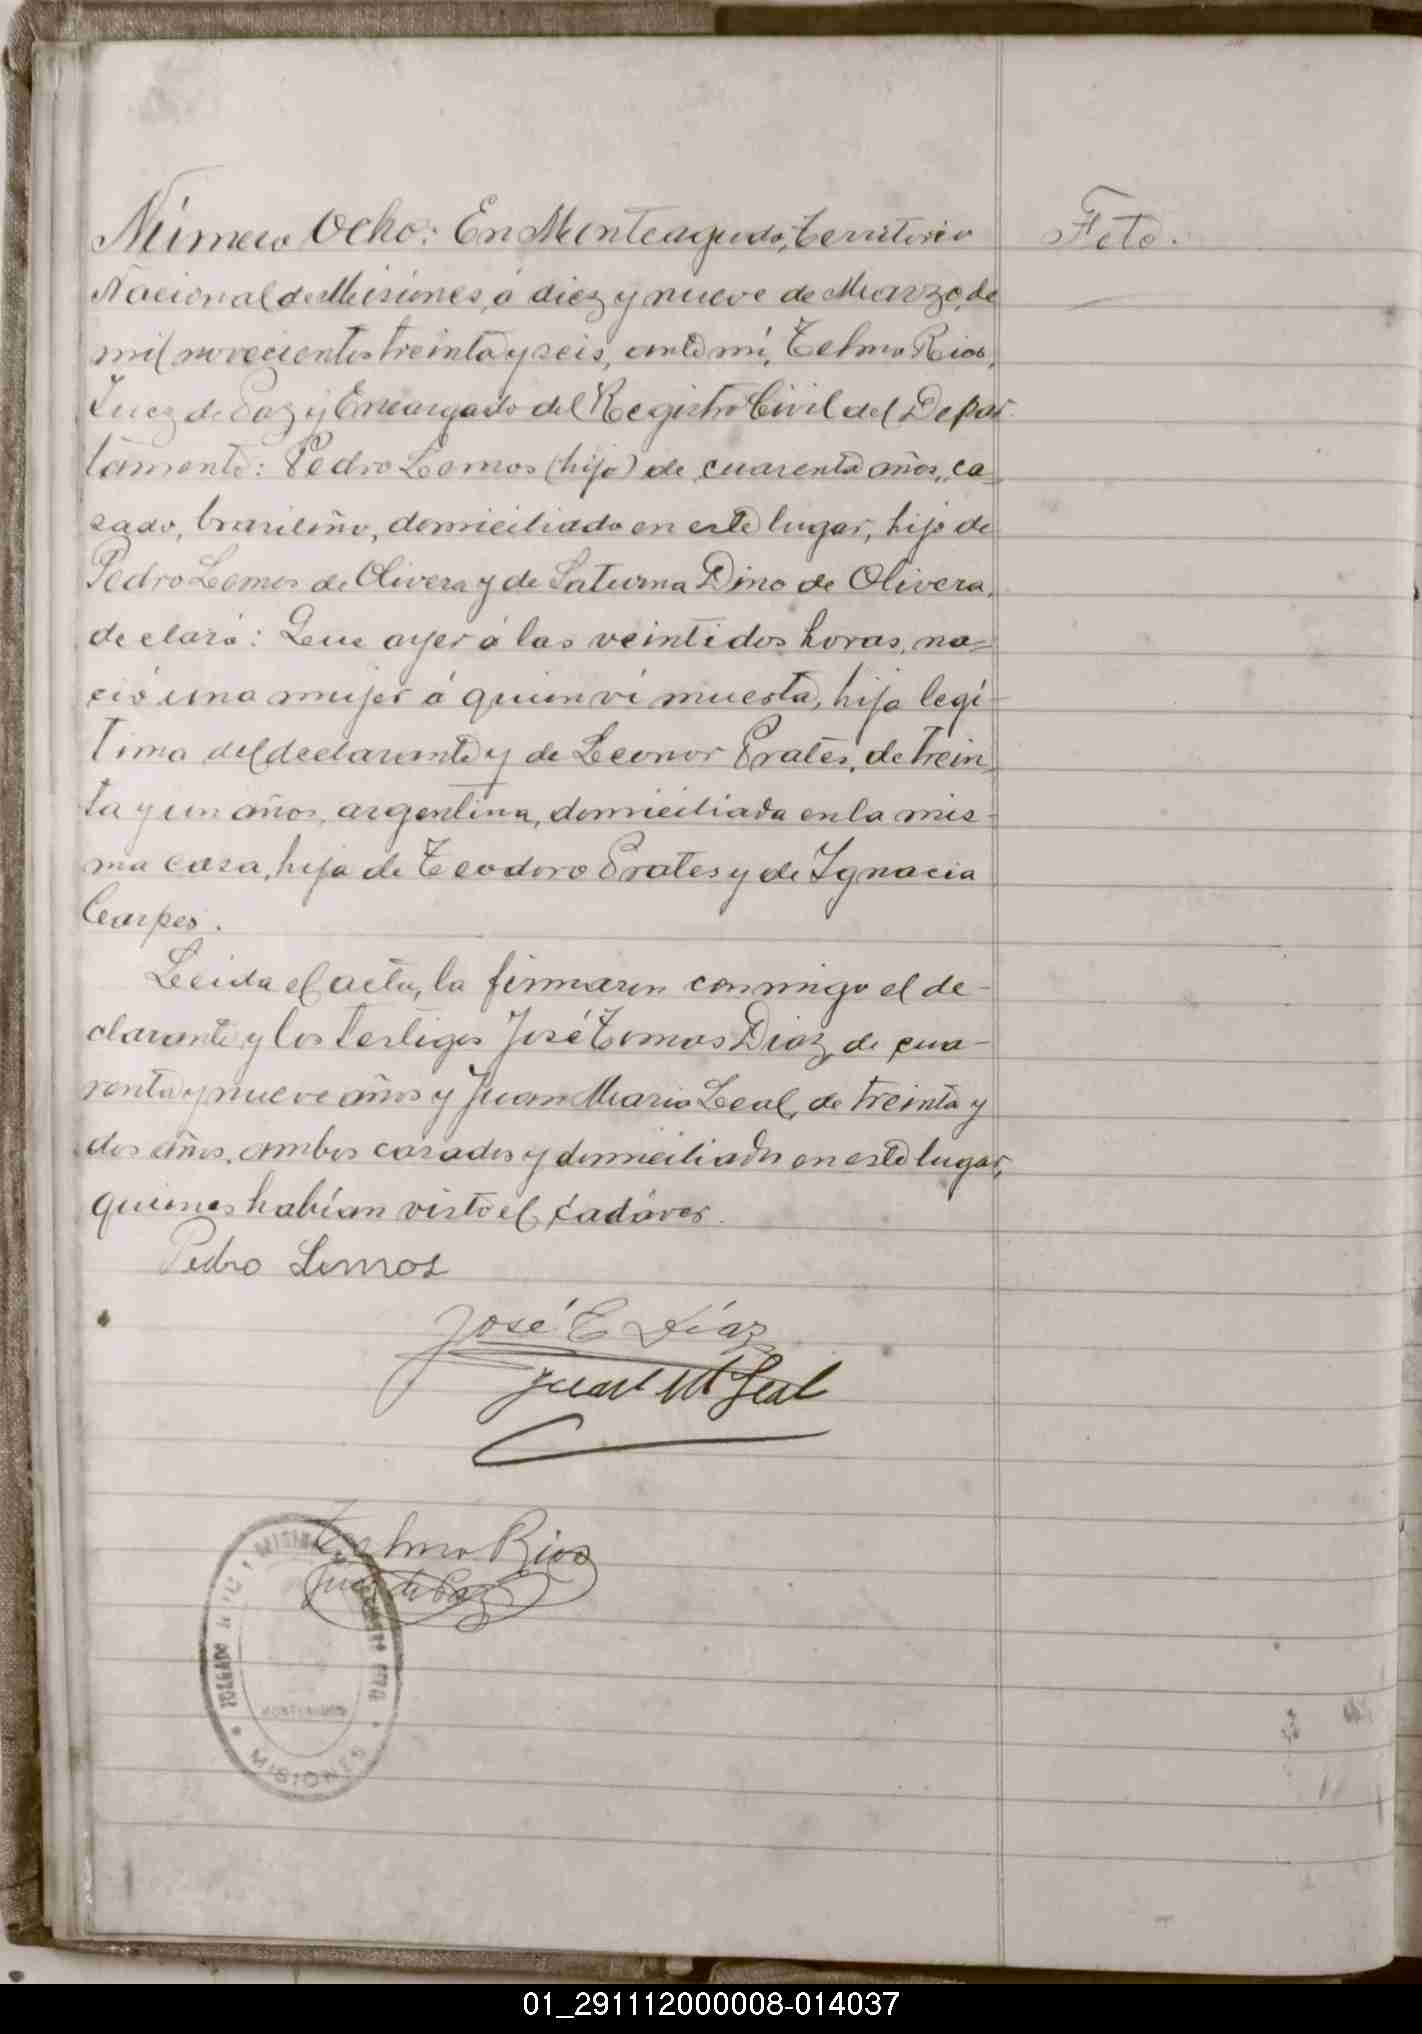 Número Ocho: En Monteagudo, Territorio
Feto.
Nacional de Misiones, á diez y nueve de Marzo, de
mil novecientos treinta y seis, ante mí, Telmo Rios,
Juez de Paz y Encargado del Registro Civil del Depar-
tamento: Pedro Lemos (hijo) de cuarenta años, ca-
sado, brasileño, domiciliado en este lugar, hijo de
Pedro Lemos de Olivera y de Saturna Dino de Olivera,
declaró: Que ayer á las veintidos horas, na-
ció una mujer á quien ví muerta, hija legí-
tima del declarante y de Leonor Prates, de trein-
ta y un años, argentina, domiciliada en la mis-
ma casa, hija de Teodoro Prates y de Ignacia
Carpes.
Leida el acta, la firmaron conmigo el de-
clarante y los testigos José Tomas Diaz, de cua-
renta y nueve años y Juan Mario Leal, de treinta y
dos años, ambos casados y domiciliados en este lugar,
quienes habían visto el cadáver.
Pedro Lemos
José T Díaz
Juan M Leal
Telmo Rios
Juez de Paz
JUZGADO
MISIONES
01_291112000008-014037